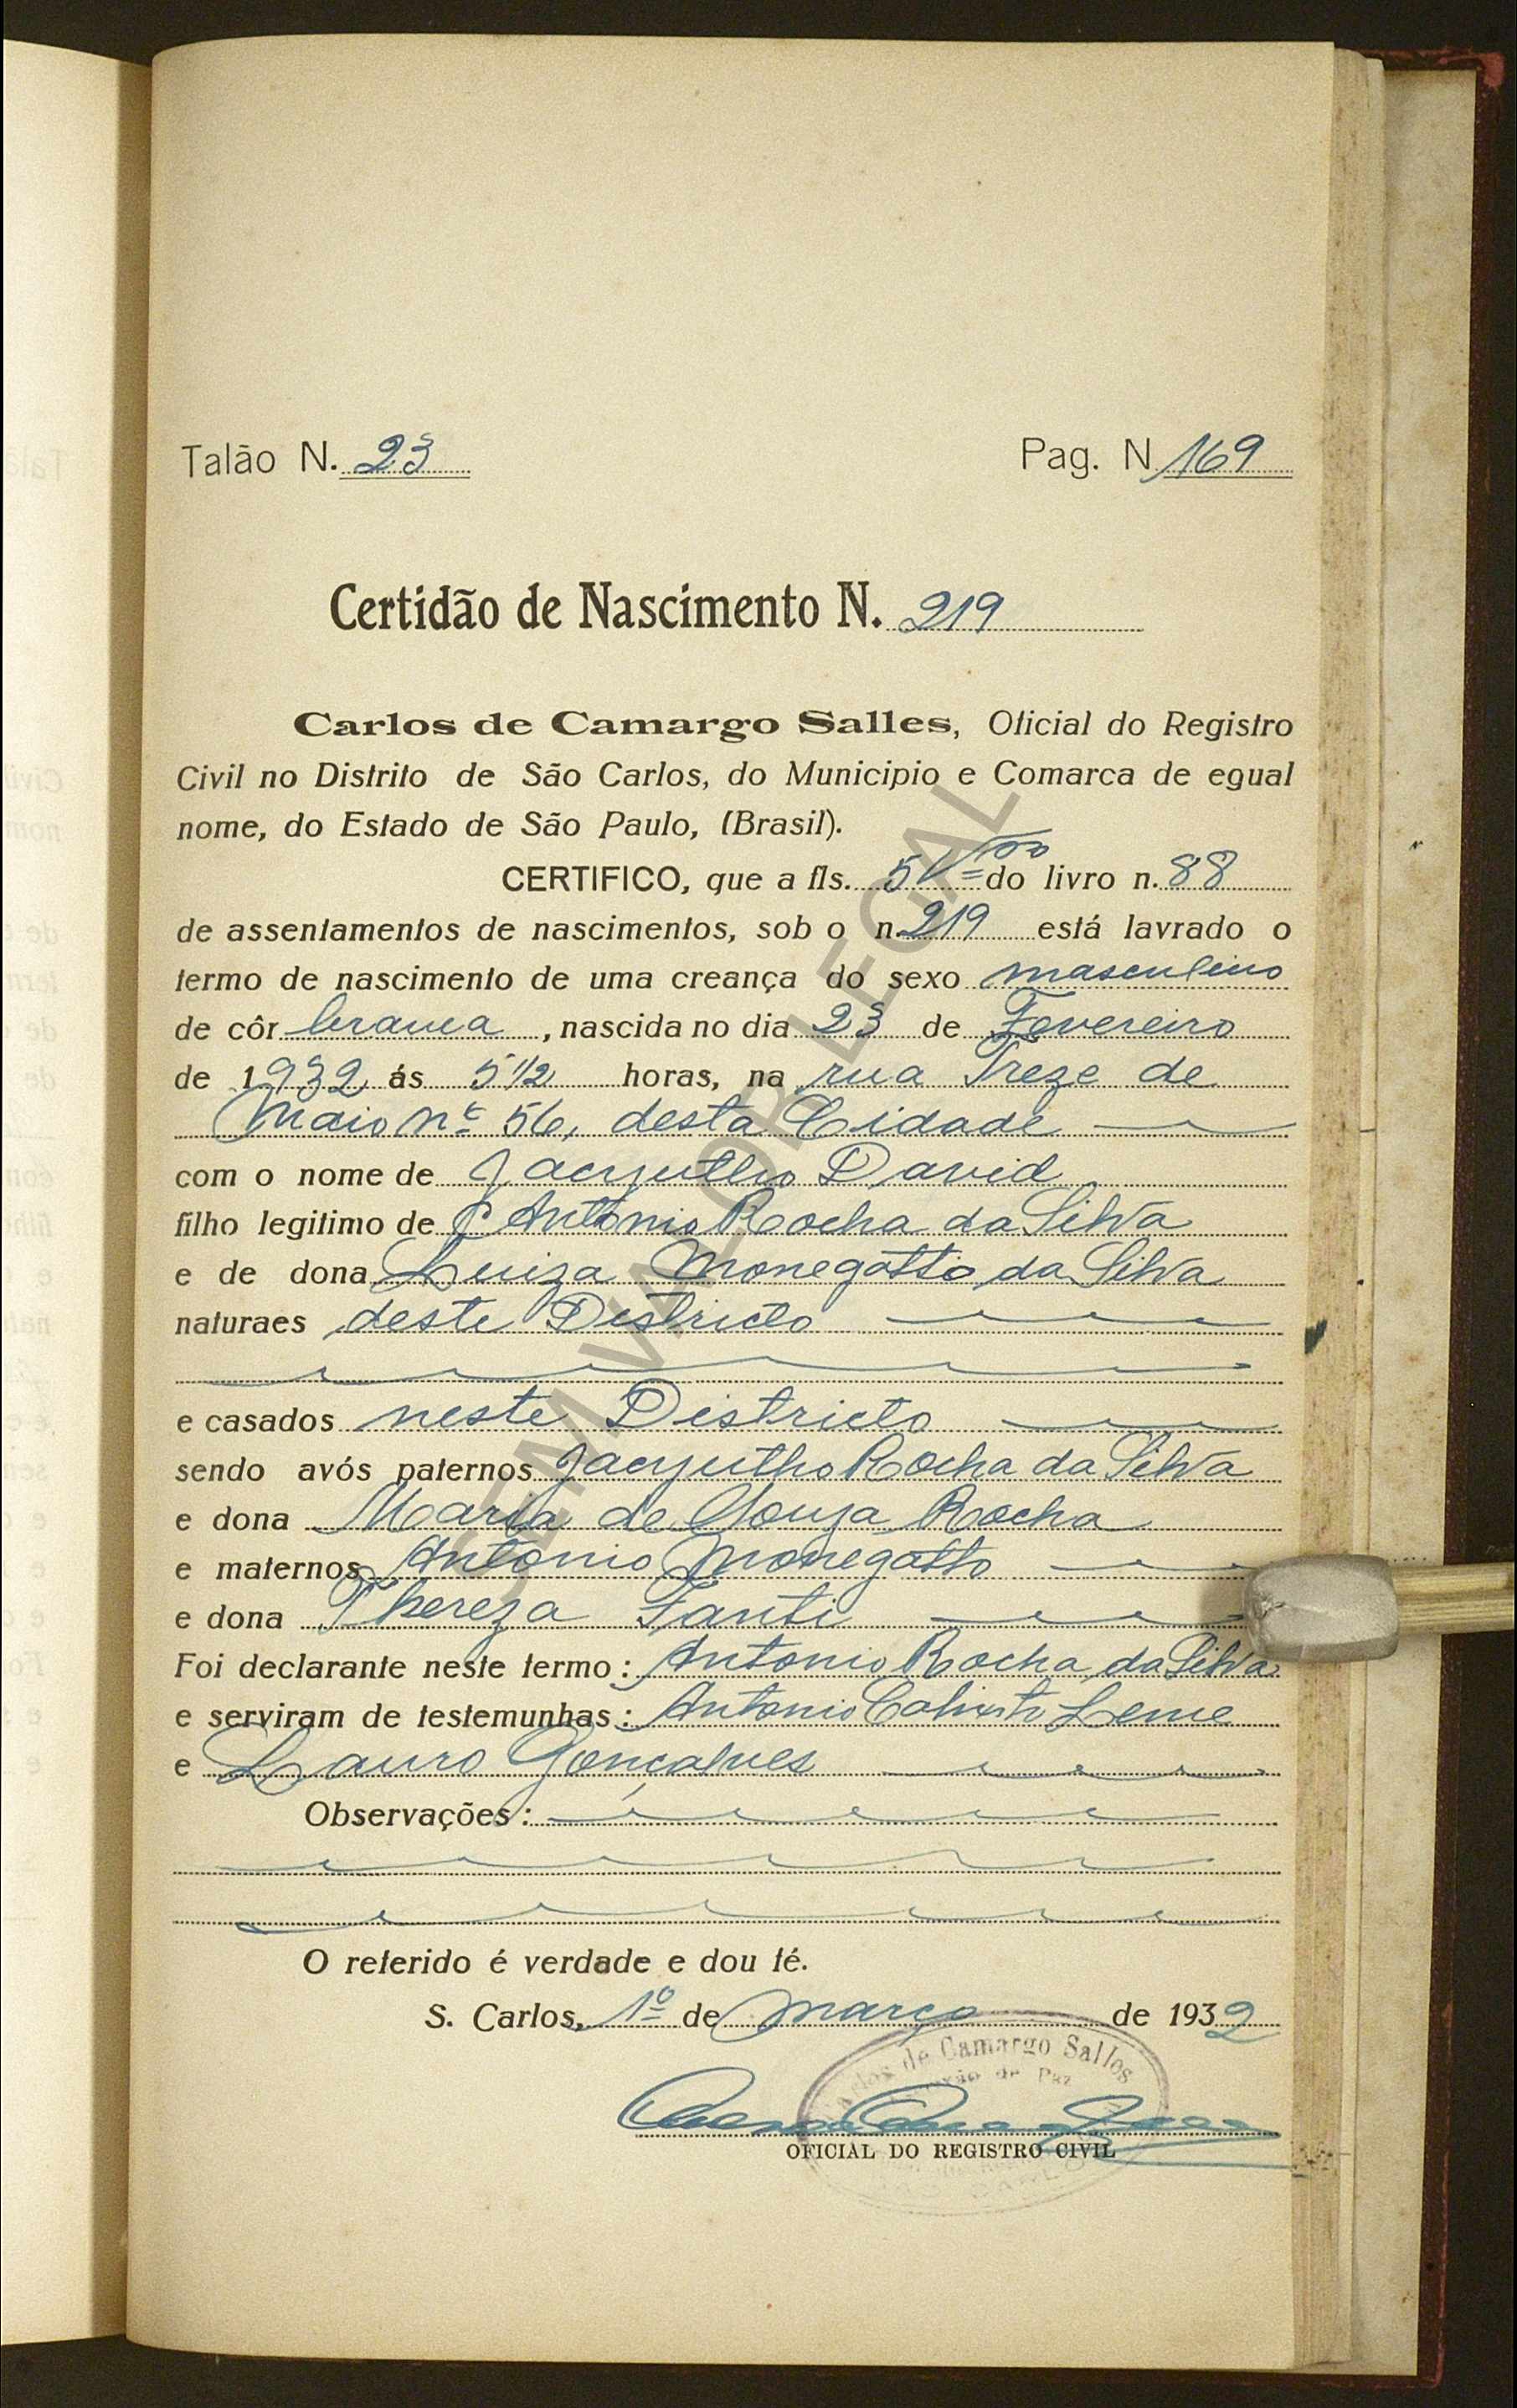 Talão N. 23 Pag. N 169
Certidão de Nascimento N. 219
Carlos de Camargo Salles, Oficial do Registro
Civil no Distrito de São Carlos, do Municipio e Comarca de egual
nome, do Estado de São Paulo, (Brasil).
CERTIFICO, que a fls. 5 Vso do livro n. 88
de assentamentos de nascimentos, sob o n. 219 está lavrado o
termo de nascimento de uma creança do sexo masculino
de côr branca, nascida no dia 23 de Fevereiro
de 1932 ás 5 1/2 horas, na rua Treze de
Maio nº 56, desta Cidade
com o nome de Jacyntho David
filho legitimo de Antonio Rocha da Silva
e de dona Luiza Monegatto da Silva
naturaes deste Districto
e casados neste Districto
sendo avós paternos Jacyntho Rocha da Silva
e dona Maria de Souza Rocha
e maternos Antonio Monegatto
e dona Thereza Fanti
Foi declarante neste termo: Antonio Rocha da Silva
e serviram de testemunhas: Antonio Calixto Leme
e Lauro Gonçalves
Observações:
O referido é verdade e dou fé.
S. Carlos, 1º de março de 1932
Carlos de Camargo Salles
de Paz
OFICIAL DO REGISTRO CIVIL
SEM VALOR LEGAL